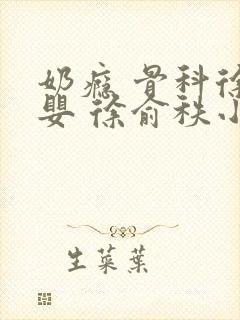 奶瘾 骨科徐
婴 徐俞秩小
生菜葉